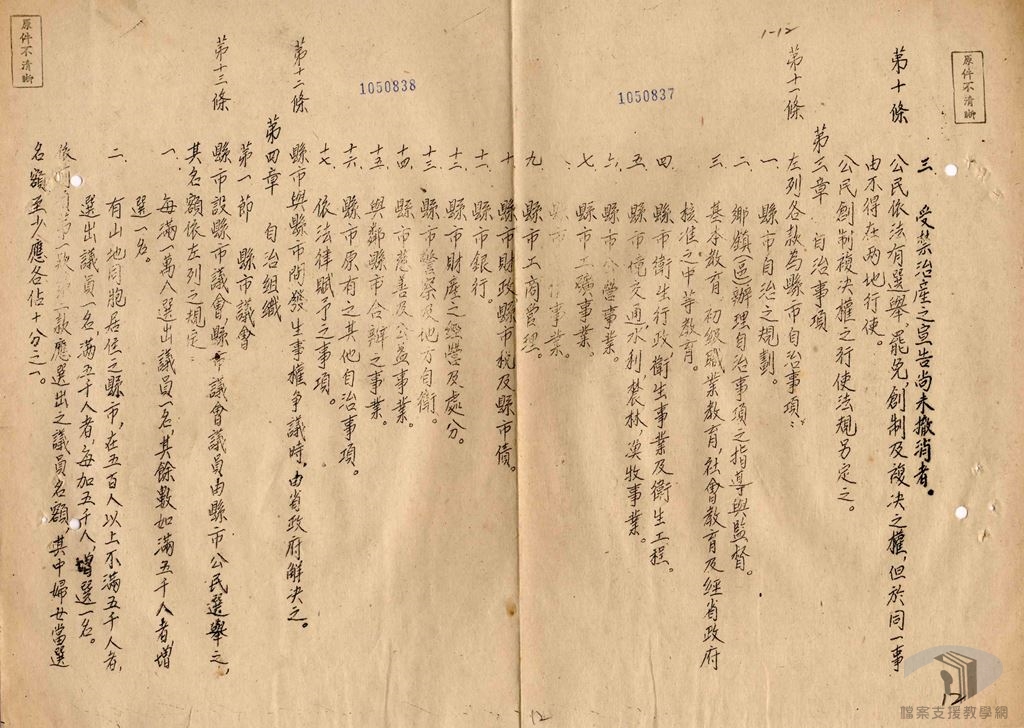 原件不清晰
1-12
1050837
三 受禁治產之宣告尚未撤消者。
第十條 公民依法有選舉、罷免、創制及複决之權,但於同一事
由不得在兩地行使。
公民創制複决權之行使法規另定之。
第三章 自治事項
第十一條 左列各款為縣市自治事項:
一、縣市自治之規劃。
二、鄉鎮(區)辦理自治事項之指導與監督。
三、基本教育,初級職業教育,社會教育及經省政府
核准之中等教育。
四、縣市衛生行政,衛生事業及衛生工程。
五、縣市交通,水利,農林,漁牧事業。
六、縣市公營事業。
七、縣市工礦事業。
縣市 事業。
九、縣市工商管理。
十、縣市財政縣市稅及縣市債。
十一、縣市銀行。
十二、縣市財產之經營及處分。
十三、縣市警察及地方自衛。
十四、縣市慈善及公益事業。
十五、與鄰縣市合辦之事業。
十六、縣市原有之其他自治事項。
十七、依法律賦予之事項。
12
1050838
原件不清晰
第十二條 縣市與縣市間發生事權爭議時,由省政府解决之。
第四章 自治組織
第一節 縣市議會
第十三條 縣市設縣市議會縣市議會議員由縣市公民選舉之,
其名額依左列之規定:
一、每滿一萬人選出議員一名,其餘數如滿五千人者,增
選一名。
二、有山地同胞居住之縣市,在五百人以上不滿五千人者,
選出議員一名,滿五千人者,每加五千人,增選一名。
依前項第一款 款應選出之議員名額,其中婦女當選
名額至少應各佔十分之一。
12
檔案支援教學網